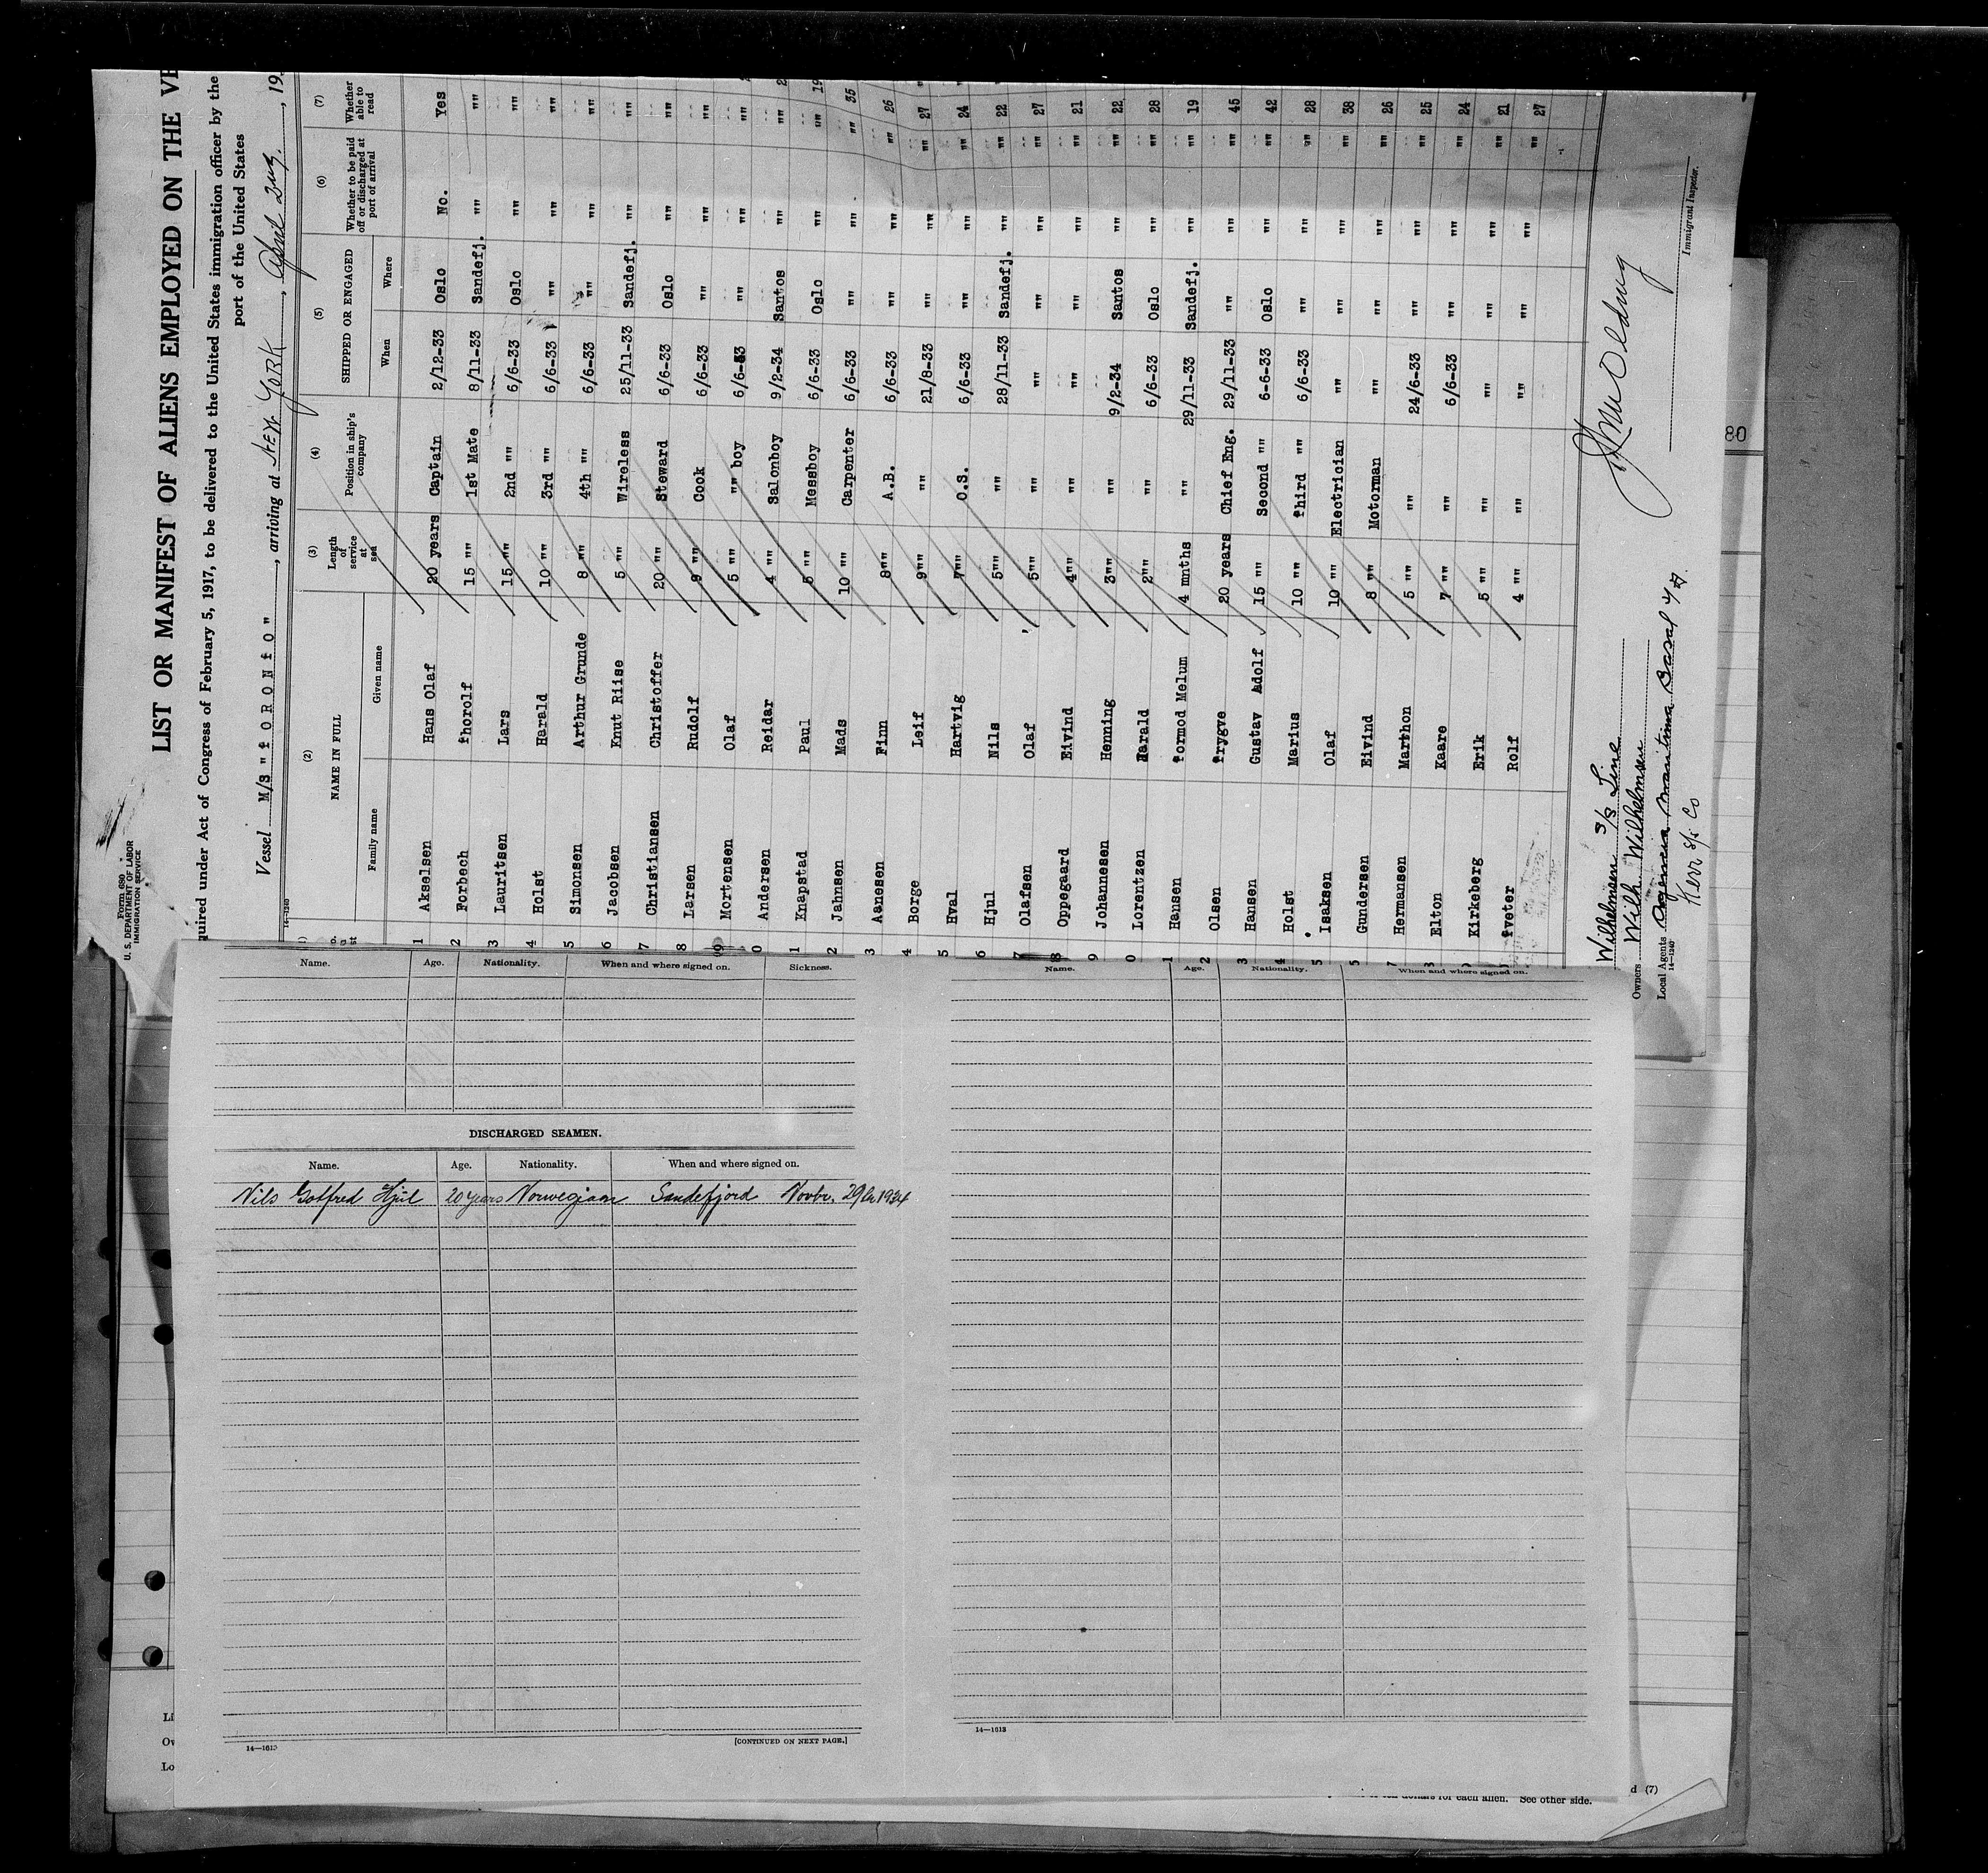 Form 680
U. S. DEPARTMENT OF LABOR
IMMIGRATION SERVICE
LIST OR MANIFEST OF ALIENS EMPLOYED ON THE VE
quired under Act of Congress of February 5, 1917, to be delivered to the United States immigration officer by the
port of the United States
Vessel M/s "TORONTO", arriving at NEW YORK, April 2nd, 193
14-1240
(2) (3) (4) (5) (6) (7)
NAME IN FULL Length of service at sea Position in ship's company SHIPPED OR ENGAGED Whether to be paid off or discharged at port of arrival Whether able to read
Family name Given name When Where
1 Akselsen Hans Olaf 20 years Captain 2/12-33 Oslo No. Yes
2 Forbech Thorolf 15 "" 1st Mate 8/11-33 Sandefj. "" ""
3 Lauritsen Lars 15 "" 2nd "" 6/6-33 Oslo "" ""
4 Holst Harald 10 "" 3rd "" 6/6-33 "" "" ""
5 Simonsen Arthur Grunde 8 "" 4th "" 6/6-33 "" "" ""
6 Jacobsen Knut Riise 5 "" Wireless 25/11-33 Sandefj. "" ""
7 Christiansen Christoffer 20 "" Steward 6/6-33 Oslo "" ""
8 Larsen Rudolf 9 "" Cook 6/6-33 "" "" ""
9 Mortensen Olaf 5 "" "" boy 6/6-33 "" "" ""
0 Andersen Reidar 4 "" Salonboy 9/2-34 Santos "" ""
1 Knapstad Paul 5 "" Messboy 6/6-33 Oslo "" "" 19
2 Jahnsen Mads 10 "" Carpenter 6/6-33 "" "" "" 35
3 Aanesen Finn 8"" A.B. 6/6-33 "" "" "" 26
4 Borge Leif 9"" "" 21/8-33 "" "" "" 27
5 Hval Hartvig 7"" O.S. 6/6-33 "" "" "" 24
6 Hjul Nils 5"" "" 28/11-33 Sandefj. "" "" 22
7 Olafsen Olaf 5"" "" "" "" "" "" 27
8 Oppegaard Eivind 4"" "" "" "" "" "" 21
9 Johannesen Henning 3"" "" 9/2-34 Santos "" "" 22
0 Lorentzen Harald 2"" "" 6/6-33 Oslo "" "" 28
1 Hansen Tormod Melum 4 mnths "" 29/11-33 Sandefj. "" "" 19
2 Olsen Trygve 20 years Chief Eng. 29/11-33 "" "" "" 45
3 Hansen Gustav Adolf 15 "" Second "" 6-6-33 Oslo "" "" 42
4 Holst Marius 10 "" Third "" 6/6-33 "" "" "" 28
5 Isaksen Olaf 10 "" Electrician "" "" "" "" 38
5 Gundersen Eivind 8 "" Motorman "" "" "" "" 26
7 Hermansen Marthon 5 "" "" 24/6-33 "" "" "" 25
8 Elton Kaare 7 "" "" 6/6-33 "" "" "" 24
Kirkeberg Erik 5 "" "" "" "" "" "" 21
Tveter Rolf 4 "" "" "" "" "" "" 27
Wilhelmsen S/S Line
Owners Wilh. Wilhelmsen
Local Agents Agencia Maritima
Kerr S/S Co
14-1240
Immigrant Inspector.
80
Name. Age. Nationality. When and where signed on. Sickness.
DISCHARGED SEAMEN.
Name. Age. Nationality. When and where signed on.
Nils Gotfred Hjul 20 years Norwegiaan Sandefjord Novbr. 29/11 1934
14—1613
[CONTINUED ON NEXT PAGE.]
Name. Age. Nationality. When and where signed on.
14—1613
Li
Ow
Lo
d (7)
dollars for each alien. See other side.